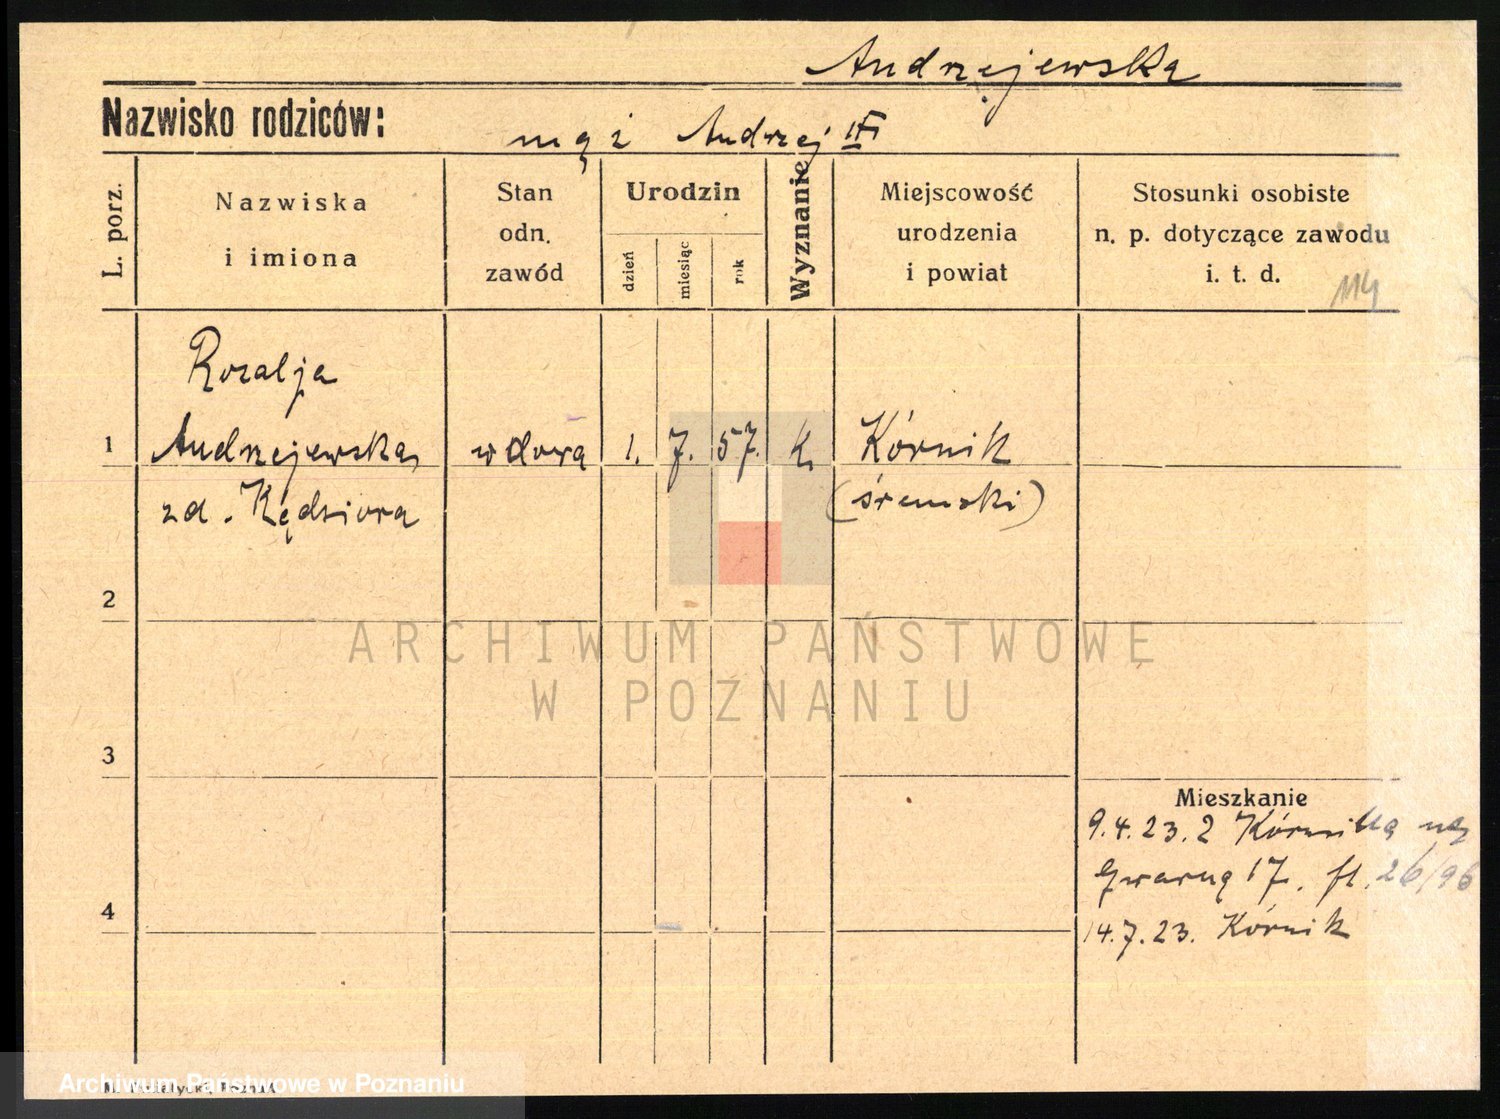 Andrzejewska
Nazwisko rodziców:
mąż Andrzej
L. porz.
Nazwiska
i imiona
Stan
odn.
zawód
Urodzin
dzień
miesiąc
rok
Wyznanie
Miejscowość
urodzenia
i powiat
Stosunki osobiste
n. p. dotyczące zawodu
i. t. d.
114
Rozalja
1 Andrzejewska, wdowa 1. 7. 57. k. Kórnik
zd. Kędziora (śremski)
2
ARCHIWUM PAŃSTWOWE
W POZNANIU
3
Mieszkanie
9.4.23. z Kórnika na
Gwarną 17. 26/96
4
14.7.23. Kórnik
Archiwum Państwowe w Poznaniu